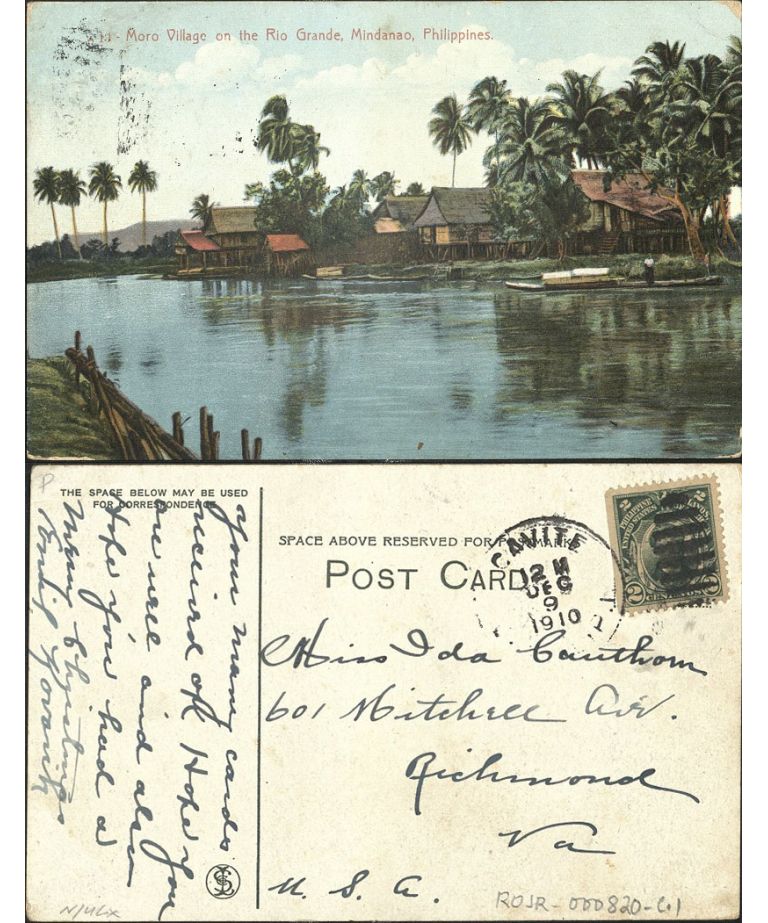 - Moro Village on the Rio Grande, Mindanao, Philippines.
THE SPACE BELOW MAY BE USED
FOR CORRESPONDENCE
SPACE ABOVE RESERVED FOR POSTMARK
POST CARD
CAVITE
12 M
DEC
9
1910
PHILIPPINE ISLANDS
UNITED STATES
2 CENTAVOS 2
your many cards
received ok Hope you
are well and also
hope you had a
Merry Christmas
Emily
Miss Ida Cauthorn
601 Mitchell Ave.
Richmond
Va
U. S. A.
P
ROJR-000820-C1